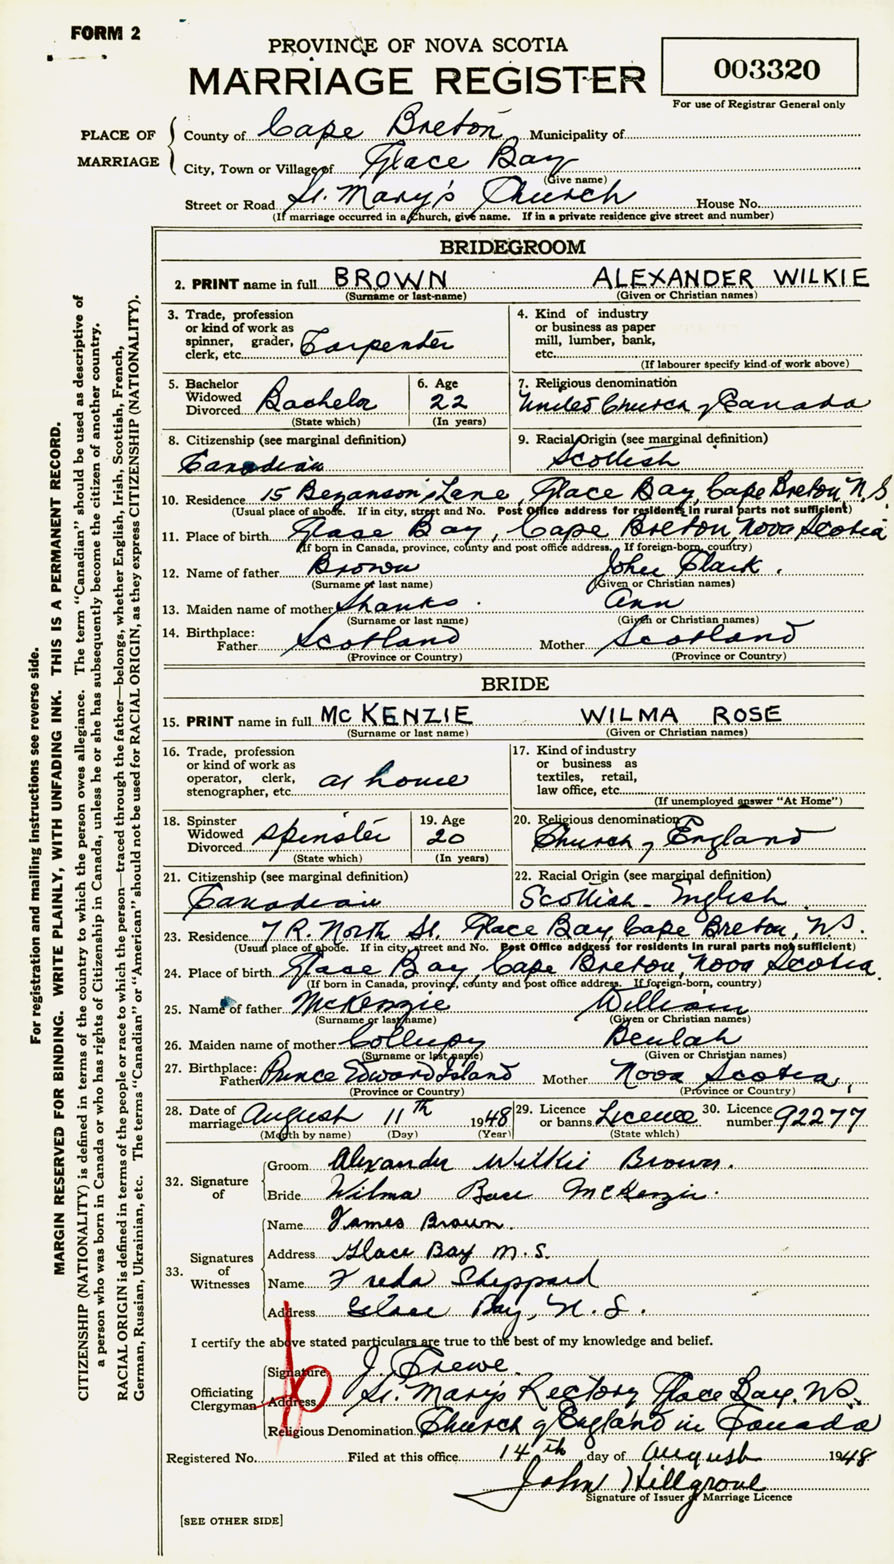 FORM 2
PROVINCE OF NOVA SCOTIA
MARRIAGE REGISTER
003320
For use of Registrar General only
PLACE OF MARRIAGE
County of Cape Breton Municipality of
City, Town or Village of Glace Bay
(Give name)
Street or Road St. Mary's Church House No.
(If marriage occurred in a church, give name. If in a private residence give street and number)
BRIDEGROOM
2. PRINT name in full BROWN ALEXANDER WILKIE
(Surname or last-name) (Given or Christian names)
3. Trade, profession or kind of work as spinner, grader, clerk, etc. Carpenter
4. Kind of industry or business as paper mill, lumber, bank, etc.
(If labourer specify kind of work above)
5. Bachelor Widowed Divorced Bachelor
(State which)
6. Age 22
(In years)
7. Religious denomination
United Church of Canada
8. Citizenship (see marginal definition)
Canadian
9. Racial Origin (see marginal definition)
Scottish
10. Residence 15 Bezanson's Lane, Glace Bay, Cape Breton, N.S.
(Usual place of abode. If in city, street and No. Post Office address for residents in rural parts not sufficient)
11. Place of birth Glace Bay, Cape Breton, Nova Scotia
(If born in Canada, province, county and post office address. If foreign-born, country)
12. Name of father Brown John Clark.
(Surname or last name) (Given or Christian names)
13. Maiden name of mother Shanks. Ann
(Surname or last name) (Given or Christian names)
14. Birthplace:
Father Scotland Mother Scotland
(Province or Country) (Province or Country)
BRIDE
15. PRINT name in full MCKENZIE WILMA ROSE
(Surname or last name) (Given or Christian names)
16. Trade, profession or kind of work as operator, clerk, stenographer, etc. at home
17. Kind of industry or business as textiles, retail, law office, etc.
(If unemployed answer "At Home")
18. Spinster Widowed Divorced spinster
(State which)
19. Age 20
(In years)
20. Religious denomination
Church of England
21. Citizenship (see marginal definition)
Canadian
22. Racial Origin (see marginal definition)
Scottish - English
23. Residence 7 R. North St. Glace Bay, Cape Breton, N.S.
(Usual place of abode. If in city, street and No. Post Office address for residents in rural parts not sufficient)
24. Place of birth Glace Bay, Cape Breton, Nova Scotia.
(If born in Canada, province, county and post office address. If foreign-born, country)
25. Name of father McKenzie William
(Surname or last name) (Given or Christian names)
26. Maiden name of mother Beulah
(Surname or last name) (Given or Christian names)
27. Birthplace:
Father Prince Edward Island Mother Nova Scotia,
(Province or Country) (Province or Country)
28. Date of marriage August 11th 1948
(Month by name) (Day) (Year)
29. Licence or banns Licence
(State which)
30. Licence number 92277
32. Signature of
Groom Alexander Wilkie Brown.
Bride Wilma Rose McKenzie.
33. Signatures of Witnesses
Name James Brown.
Address Glace Bay N.S.
Name Freda Sheppard
Address Glace Bay, N.S.
I certify the above stated particulars are true to the best of my knowledge and belief.
Officiating Clergyman
Signature J. Frewe
Address St. Mary's Rectory, Glace Bay. N.S.
Religious Denomination Church of England in Canada
Registered No. Filed at this office 14th day of August 1948
John Hillgrove
Signature of Issuer of Marriage Licence
[SEE OTHER SIDE]
For registration and mailing instructions see reverse side.
MARGIN RESERVED FOR BINDING. WRITE PLAINLY, WITH UNFADING INK. THIS IS A PERMANENT RECORD.
CITIZENSHIP (NATIONALITY) is defined in terms of the country to which the person owes allegiance. The term "Canadian" should be used as descriptive of
a person who was born in Canada or who has rights of Citizenship in Canada, unless he or she has subsequently become the citizen of another country.
RACIAL ORIGIN is defined in terms of the people or race to which the person—traced through the father—belongs, whether English, Irish, Scottish, French,
German, Russian, Ukrainian, etc. The terms "Canadian" or "American" should not be used for RACIAL ORIGIN, as they express CITIZENSHIP (NATIONALITY).